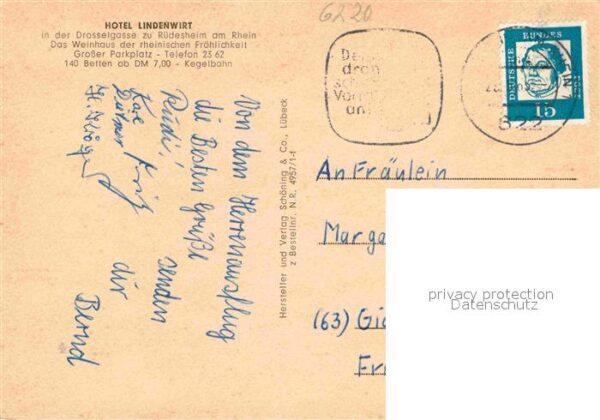 6220
HOTEL LINDENWIRT
in der Drosselgasse zu Rüdesheim am Rhein
Das Weinhaus der rheinischen Fröhlichkeit
Großer Parkplatz - Telefon 23 62
140 Betten ab DM 7,00 - Kegelbahn
Von dem Herrenausflug
die Besten Grüße senden
Rudi, dir
Fritz Bernd
Hersteller und Verlag Schöning & Co., Lübeck
z Bestellnr. N.R. 4957/1-f
DEUTSCHE BUNDESPOST
15
622
An Fräulein
Marga
(63) Gie
Fr
privacy protection
Datenschutz